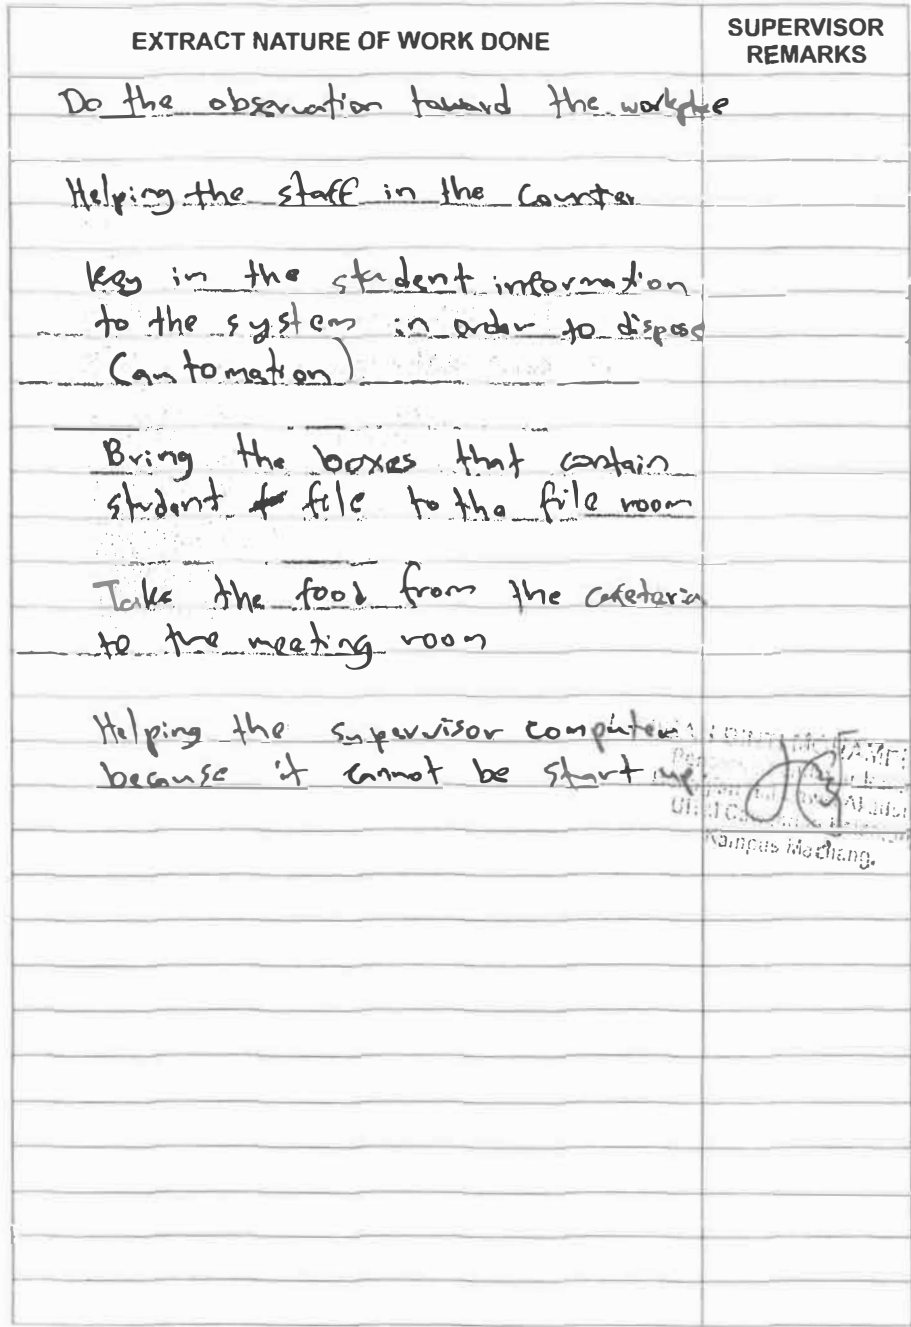 EXTRACT NATURE OF WORK DONE
SUPERVISOR
REMARKS
Do the observation toward the workplce
Helping the staff in the Counter
key in the student information
to the system in order to dispose
(automation)
Bring the boxes that contain
student file to the file room
Take the food from the cafetaria
to the meeting room
Helping the supervisor computer
because it cannot be start up.
Kampus Machang.